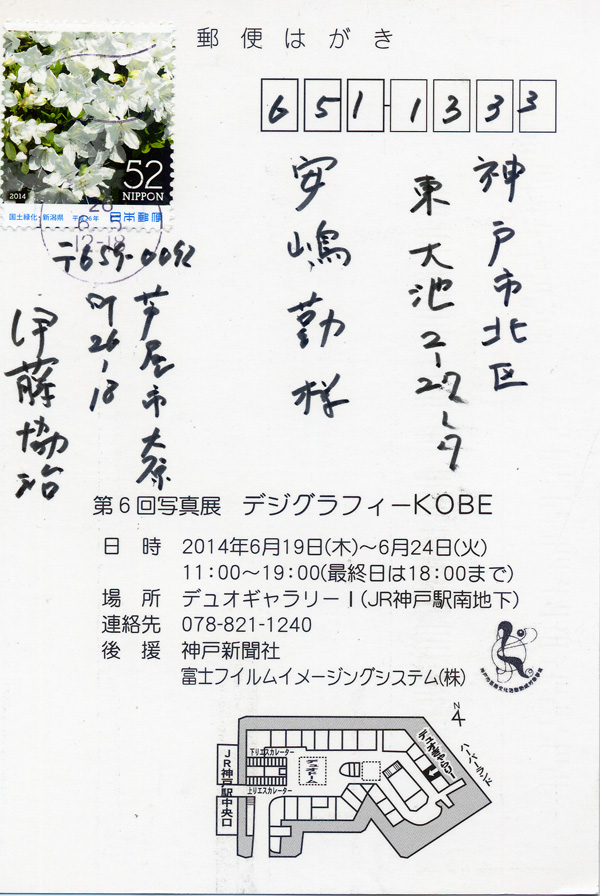 郵便はがき
651-1333
神戸市北区
東大池2-27-7
安嶋勤様
2014
52
NIPPON
国土緑化・新潟県 平成26年 日本郵便
26
6 5
12-18
〒659-0092
芦屋市大原
町26-18
伊藤協治
第6回写真展 デジグラフィーKOBE
日 時 2014年6月19日(木)～6月24日(火)
11:00～19:00(最終日は18:00まで)
場 所 デュオギャラリーⅠ(JR神戸駅南地下)
連絡先 078-821-1240
後 援 神戸新聞社
富士フイルムイメージングシステム(株)
N
4
ハーバーランド
デュオギャラリー
下りエスカレーター
デュオドーム
上りエスカレーター
JR神戸駅中央口